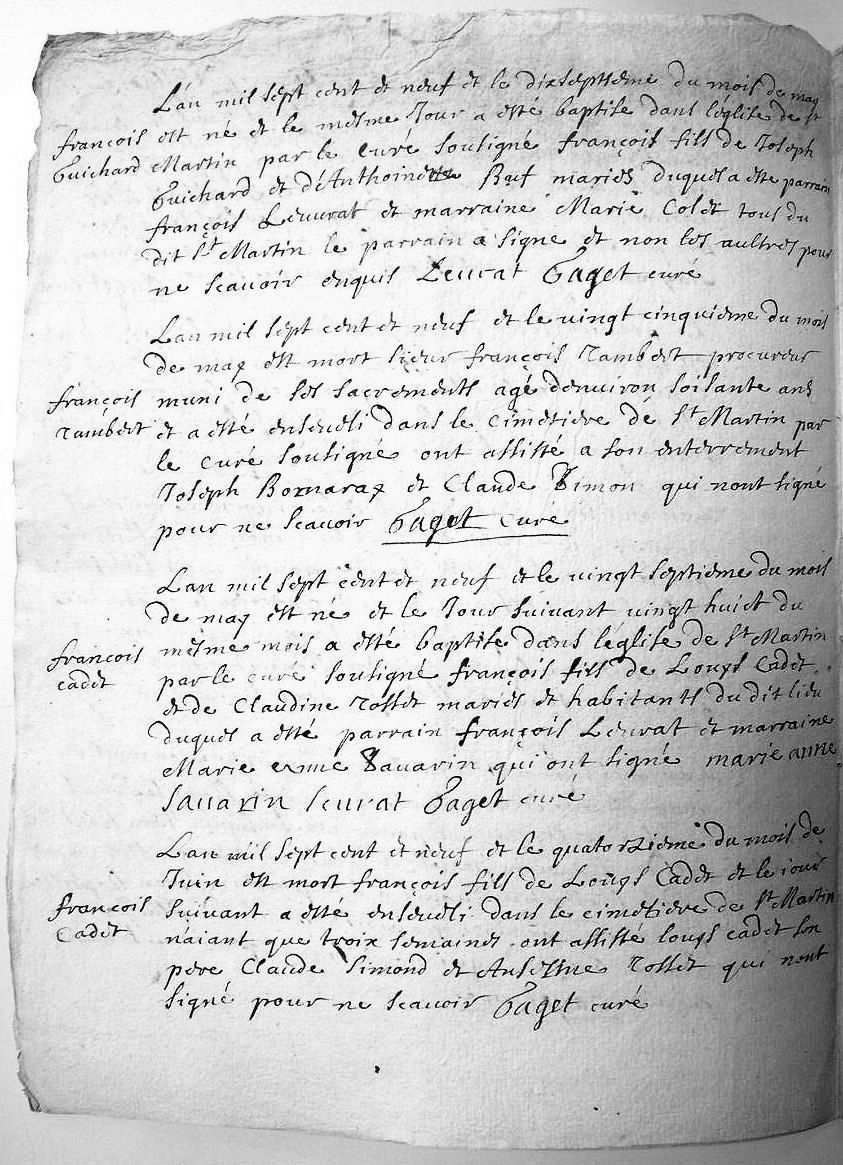 Lan mil sept cent et neuf et le dixseptieme du mois de may
françois est né et le mesme Jour a esté baptise dans l'église de st
Guichard Martin par le curé soutigné françois fils de Joseph
Guichard et d'Anthoinette Buf mariés duquel a este parrain
françois Leuvrat et marraine Marie Colet tous du
dit st Martin le parrain a signe et non les aultres pour
ne scavoir enquis Leurat Gaget curé
Lan mil sept cent et neuf et le vingt cinquieme du mois
de may est mort sieur françois rambert procureur
françois muni de ses sacrements agé denuiron soisante ans
rambert et a esté enseueli dans le cimetiere de st Martin par
le curé soutigné ont assisté a son enterrement
Joseph Bornaray et Claude Simon qui nont signé
pour ne scavoir Gaget curé
Lan mil sept cent et neuf et le vingt septieme du mois
de may est né et le Jour suivant vingt huict du
mesme mois a esté baptise dans l'église de st Martin
françois
cadet
par le curé soutigné françois fils de Louys Cadet
et de Claudine rosset mariés et habitants du dit lieu
duquel a esté parrain françois Leurat et marraine
Marie anne Sauarin qui ont signé marie anne
sauarin leurat Gaget curé
Lan mil sept cent et neuf et le quatorzieme du mois de
Juin est mort françois fils de Louys Cadet et le jour
françois
Cadet
suivant a esté enseueli dans le cimetiere de st Martin
n'aiant que troix semaines ont assisté louys cadet son
pere Claude Simond et Anselme rosset qui nont
signé pour ne scavoir Gaget curé